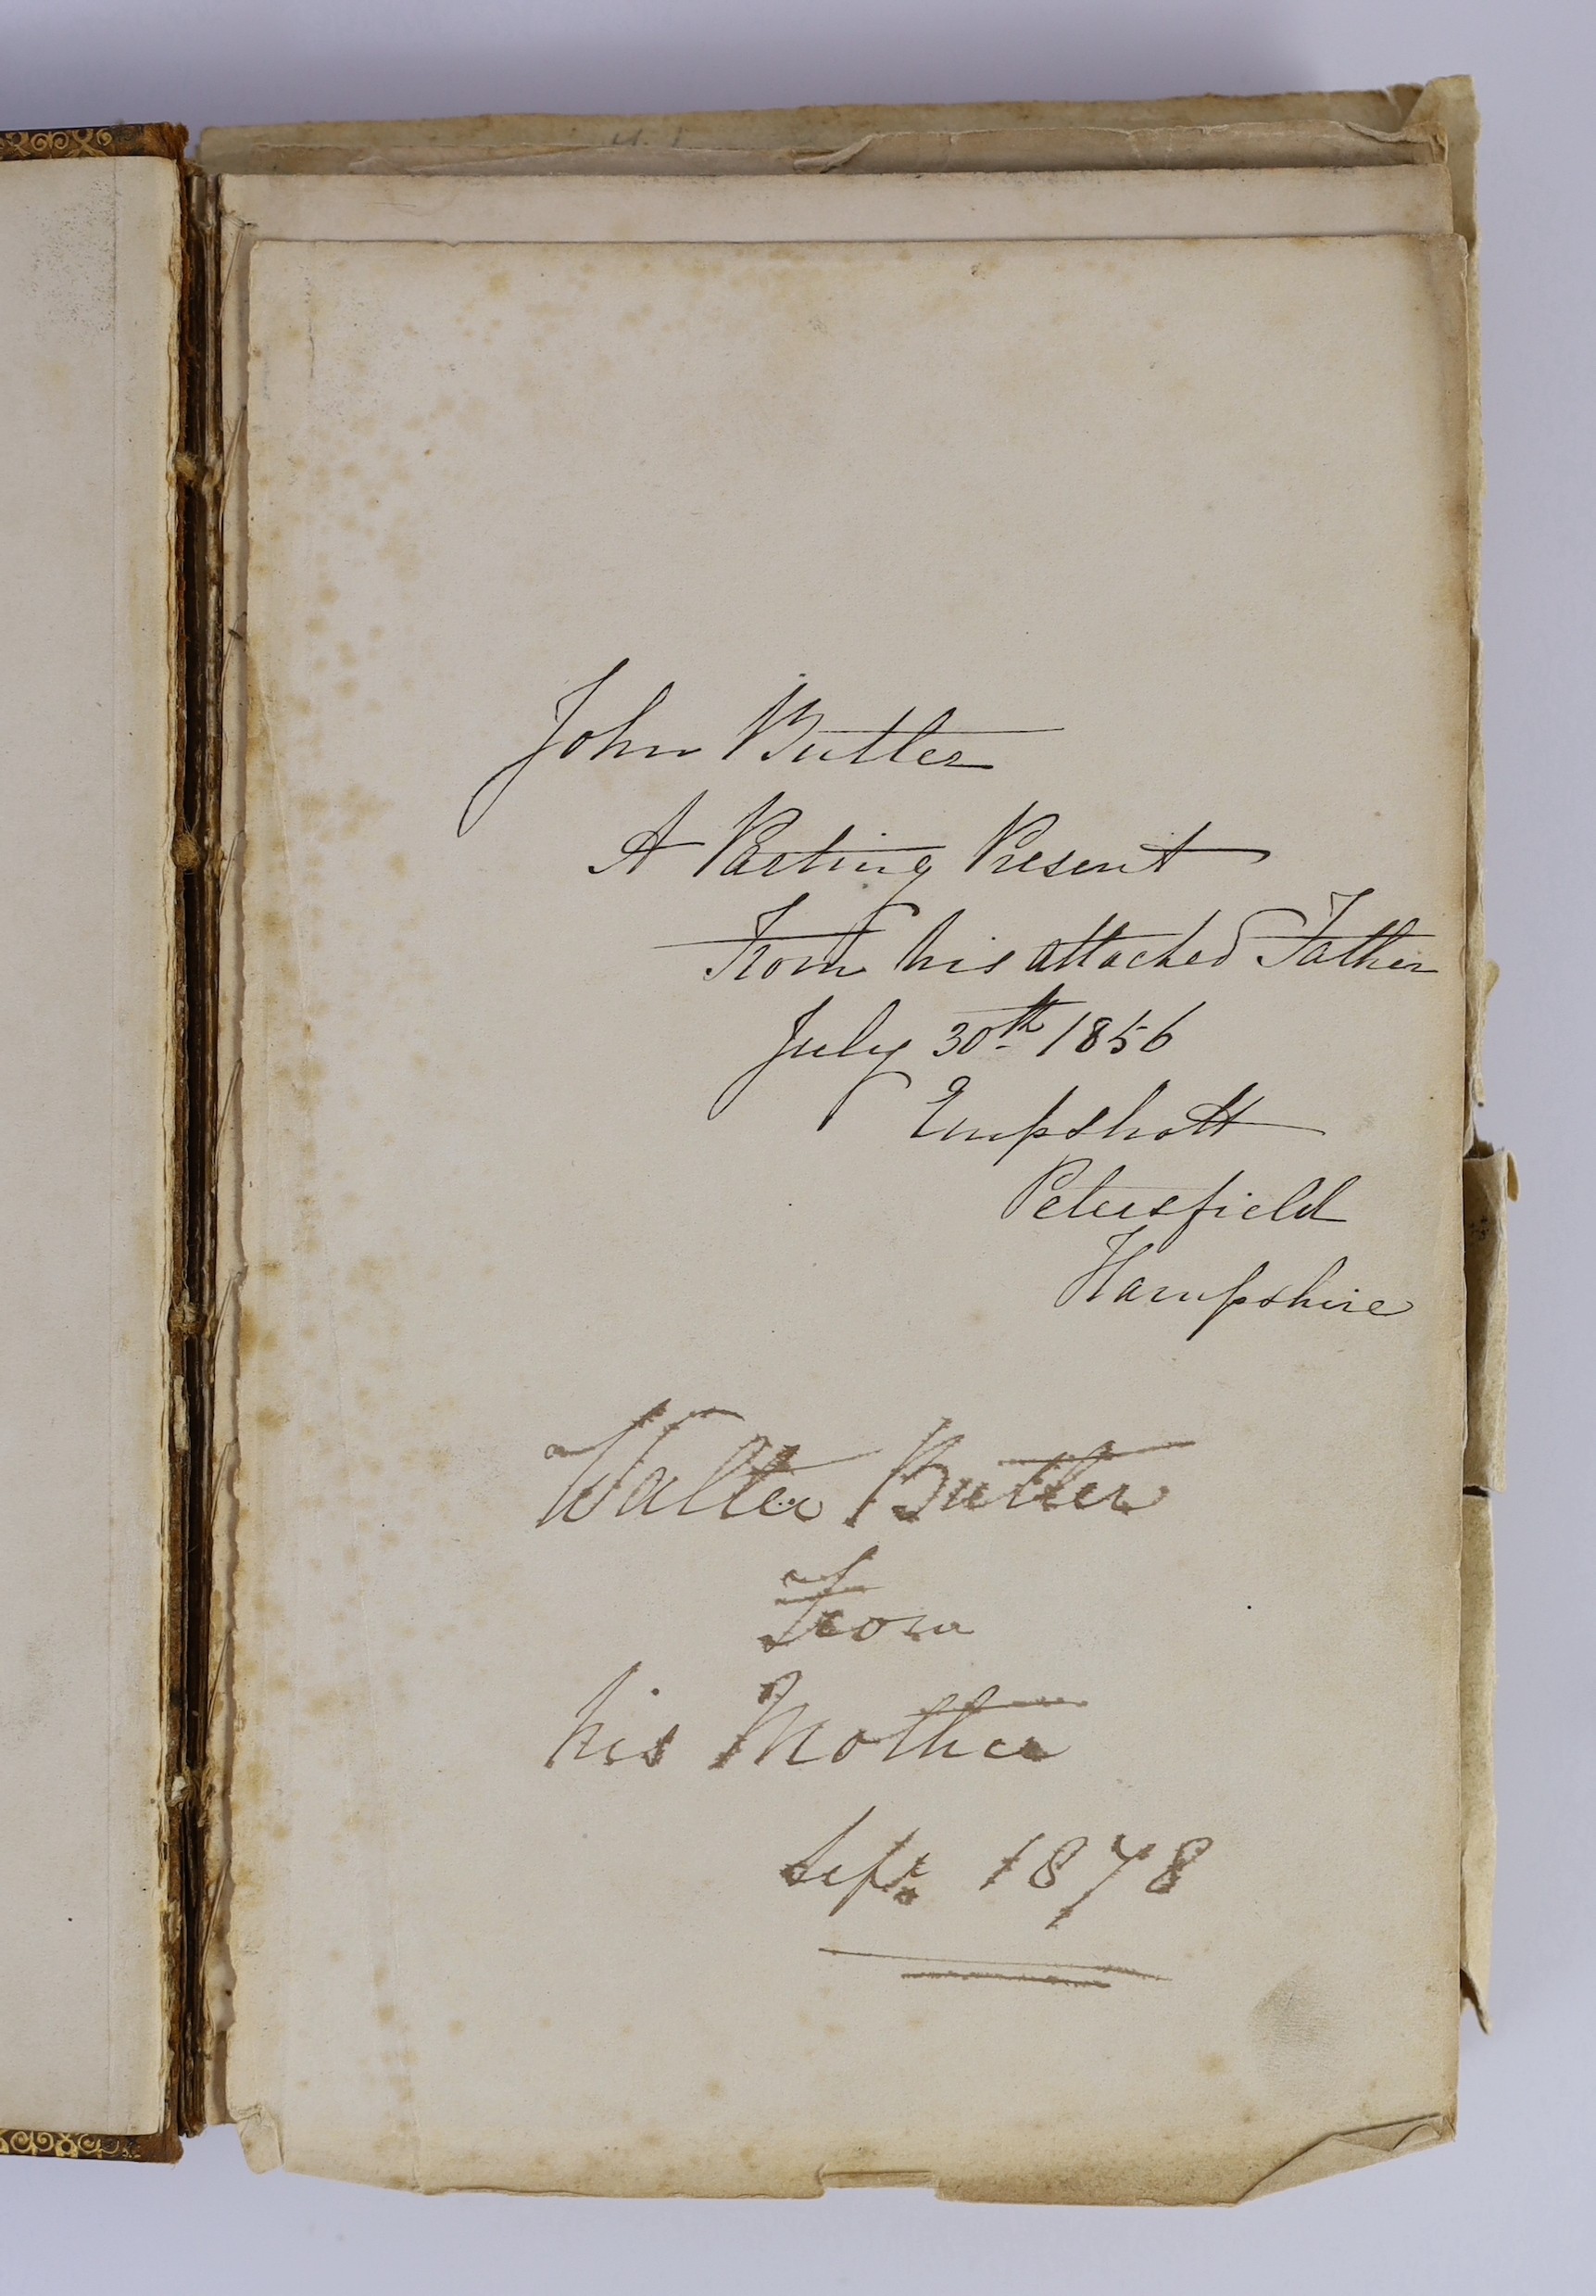 John Butler
A Parting Present
From his attached Father
July 30th 1856
Empshott
Petersfield
Hampshire
Walter Butler
From
his Mother
Sept. 1878